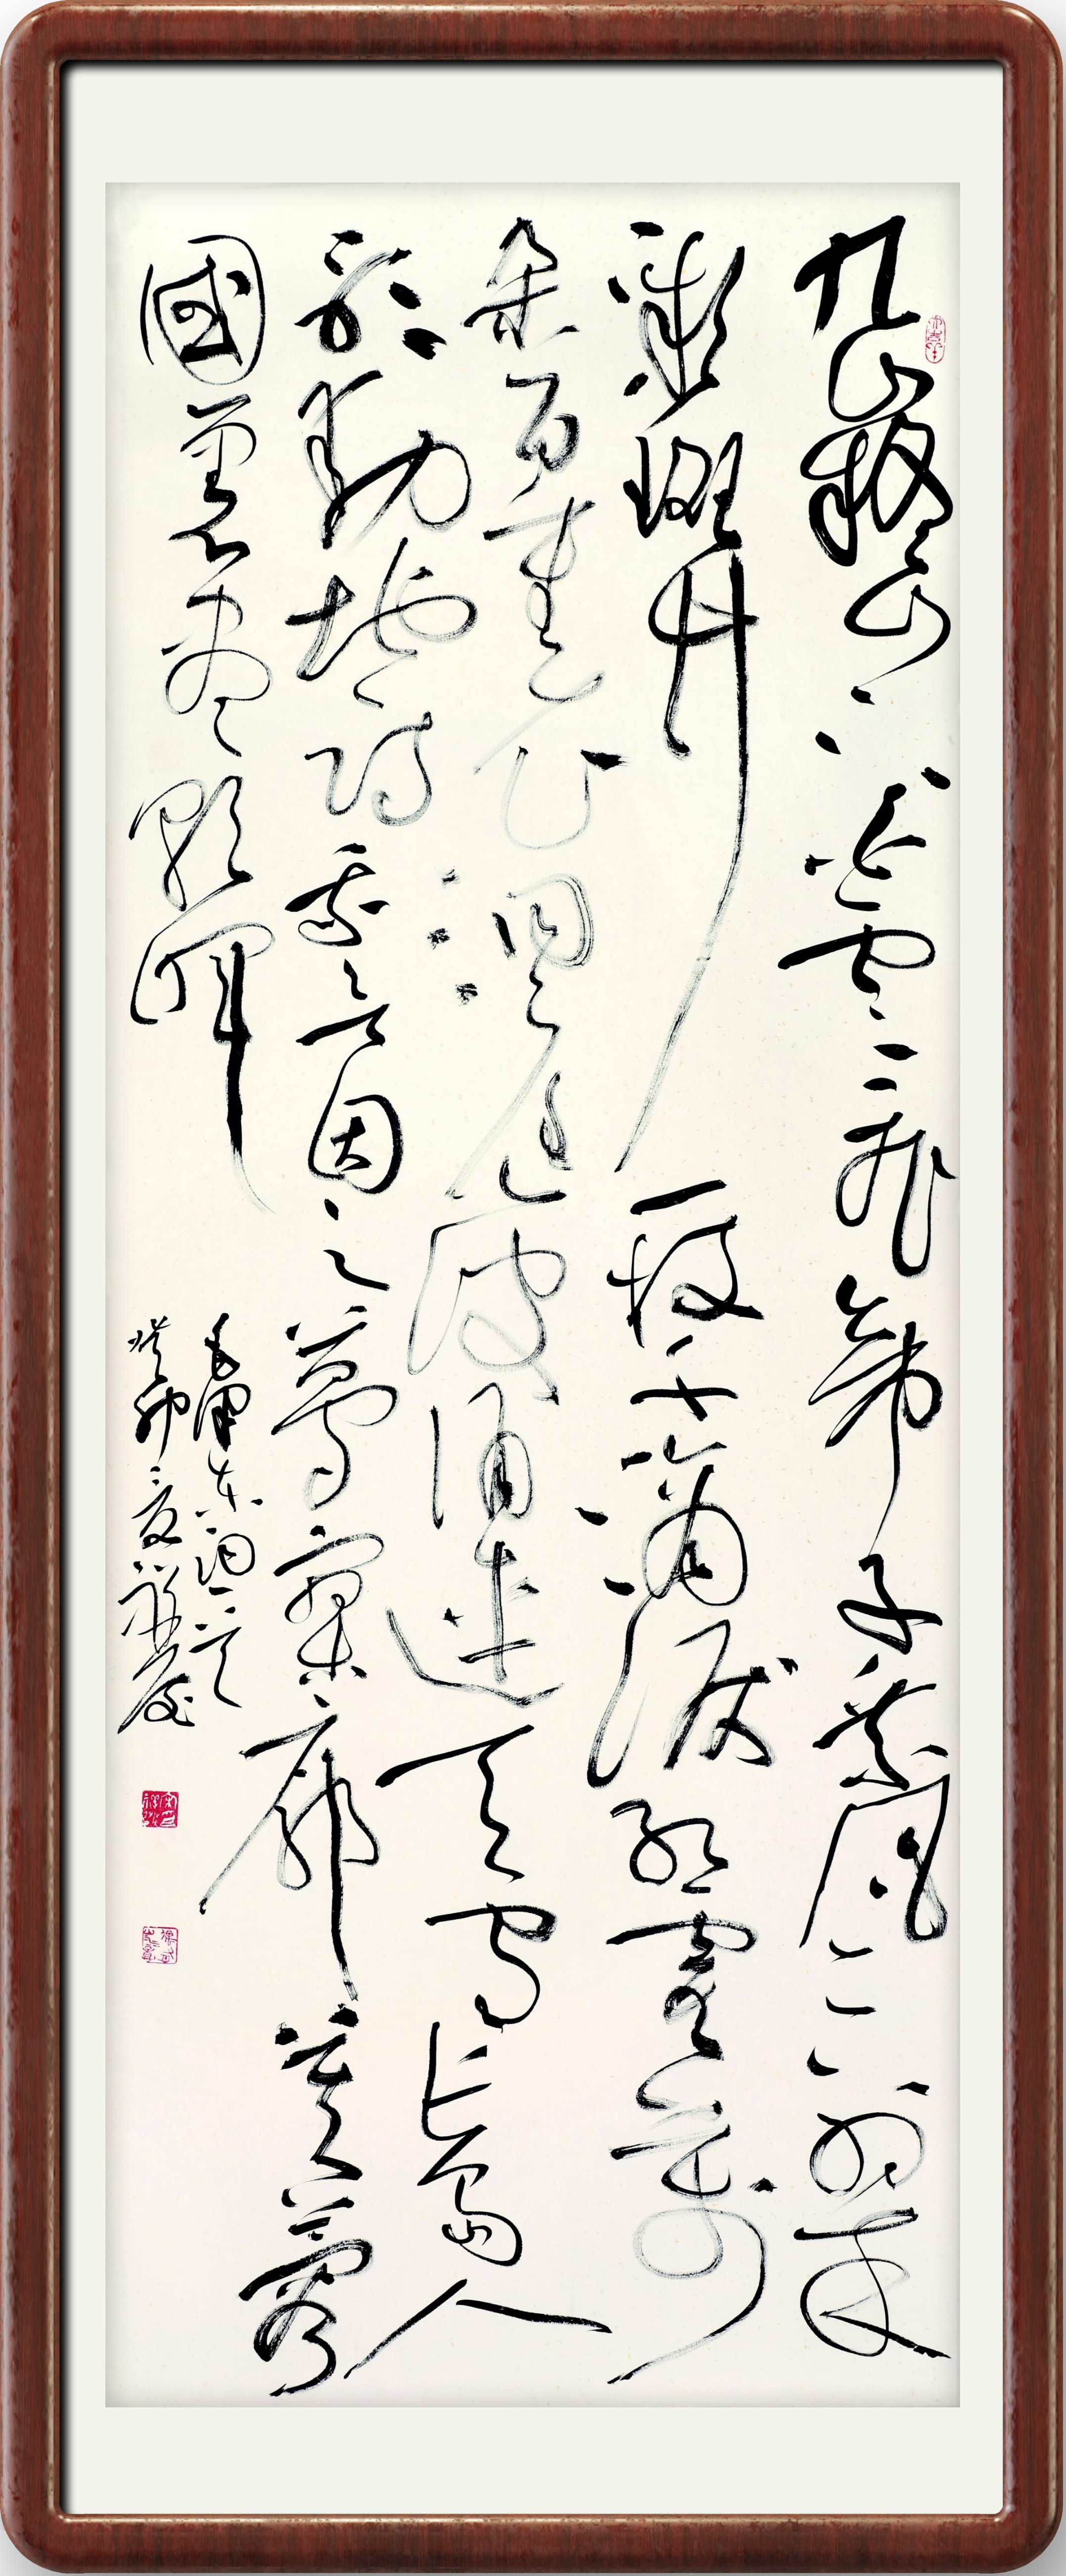 九嶷山上白雲飛帝子乘風下翠
微斑竹一枝千滴淚紅霞萬
朵百重衣洞庭波涌連天雪長島人
歌動地詩我欲因之夢寥廓芙蓉
國裏盡朝暉
毛澤东詞一首
癸卯之夏